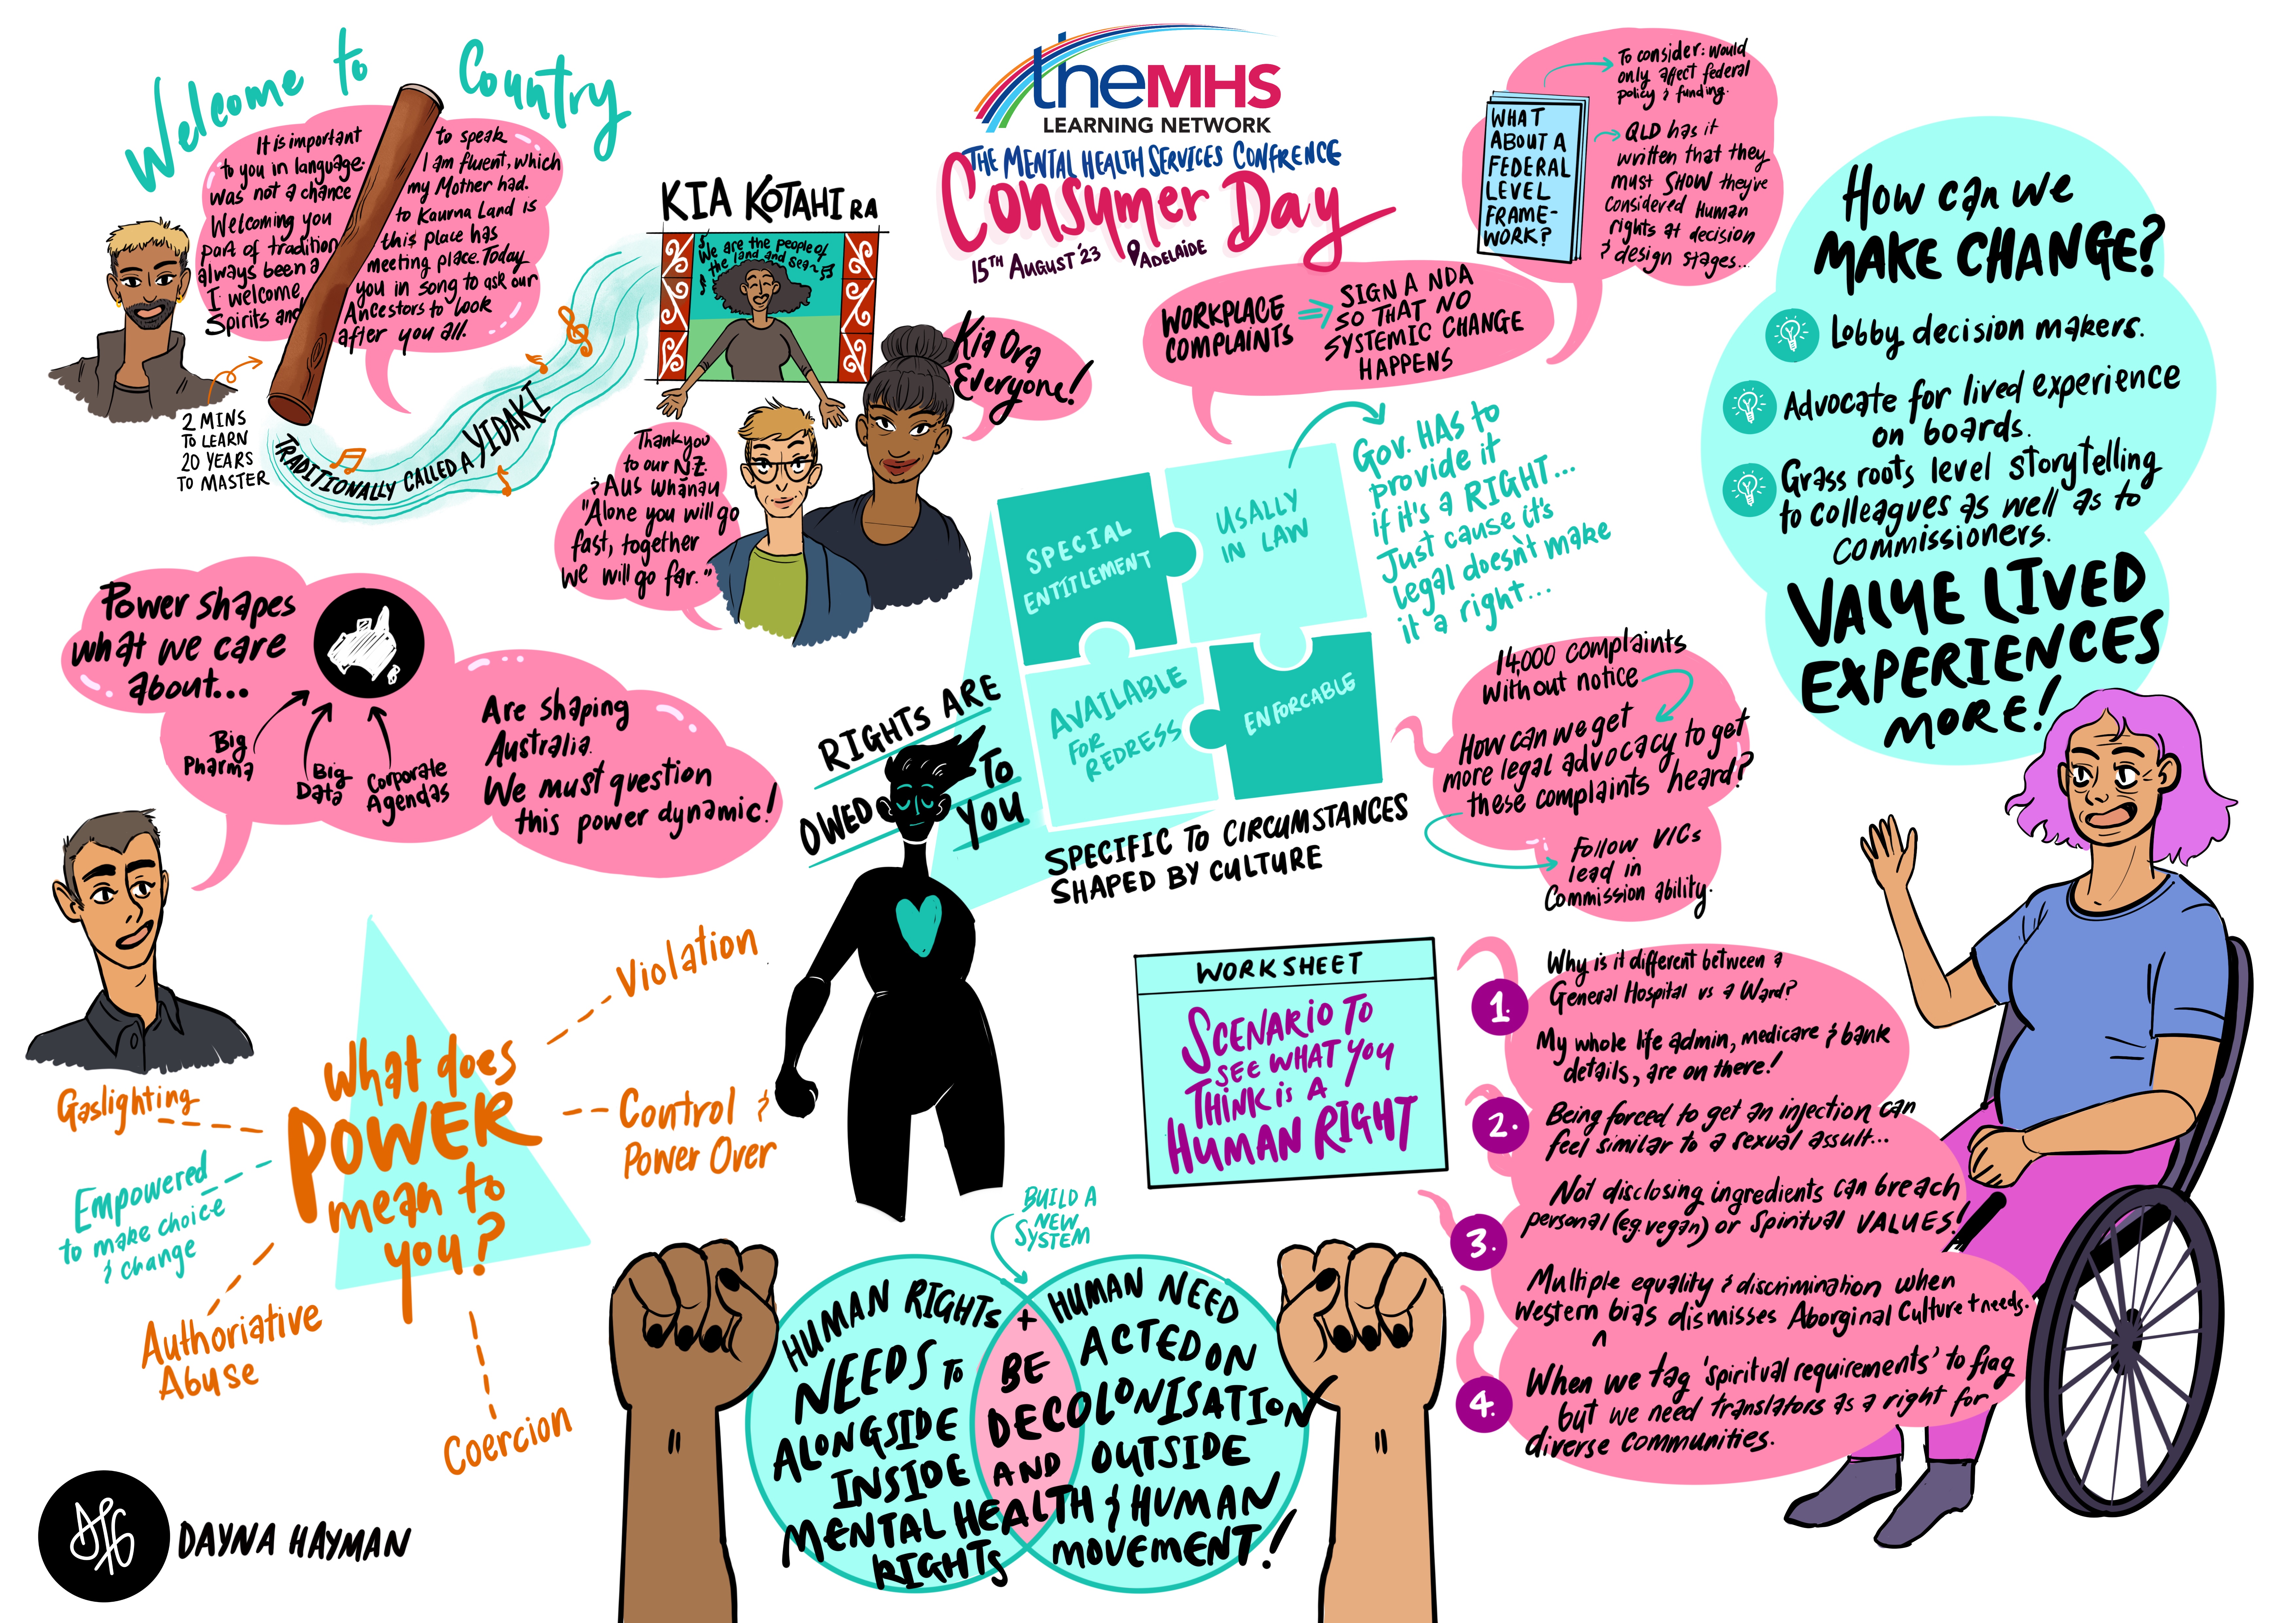 Welcome to Country
It is important to speak
to you in language. I am fluent, which
was not a chance my Mother had.
Welcoming you to Kaurna Land is
part of tradition this place has
always been a meeting place. Today
I welcome you in song to ask our
Spirits and Ancestors to look
after you all.
2 MINS
TO LEARN
20 YEARS
TO MASTER
TRADITIONALLY CALLED A YIDAKI
KIA KOTAHI RA
We are the people of
the land and sea
Kia Ora
Everyone!
Thank you
to our N.Z.
& Aus whanau
"Alone you will go
fast, together
we will go far."
theMHS
LEARNING NETWORK
THE MENTAL HEALTH SERVICES CONFRENCE
Consumer Day
15TH AUGUST '23 ADELAIDE
WHAT
ABOUT A
FEDERAL
LEVEL
FRAME-
WORK?
To consider: would
only affect federal
policy & funding.
QLD has it
written that they
must SHOW they've
considered Human
rights at decision
& design stages...
WORKPLACE
COMPLAINTS
SIGN A NDA
SO THAT NO
SYSTEMIC CHANGE
HAPPENS
How can we
MAKE CHANGE?
Lobby decision makers.
Advocate for lived experience
on boards.
Grass roots level storytelling
to colleagues as well as to
commissioners.
VALUE LIVED
EXPERIENCES
MORE!
Power shapes
what we care
about...
Big
Pharma
Big
Data
Corporate
Agendas
Are shaping
Australia.
We must question
this power dynamic!
RIGHTS ARE
OWED TO
YOU
SPECIAL
ENTITLEMENT
USALLY
IN LAW
AVAILABLE
FOR
REDRESS
ENFORCABLE
Gov. HAS to
provide it
if it's a RIGHT...
Just cause it's
legal doesn't make
it a right...
SPECIFIC TO CIRCUMSTANCES
SHAPED BY CULTURE
14,000 complaints
without notice
How can we get
more legal advocacy to get
these complaints heard?
Follow VICs
lead in
Commission ability.
What does
POWER
mean to
you?
Violation
Control &
Power Over
Coercion
Authoriative
Abuse
Empowered
to make choice
& change
Gaslighting
WORKSHEET
SCENARIO TO
SEE WHAT YOU
THINK IS A
HUMAN RIGHT
1.
Why is it different between a
General Hospital vs a Ward?
My whole life admin, medicare & bank
details, are on there!
2.
Being forced to get an injection can
feel similar to a sexual assult...
3.
Not disclosing ingredients can breach
personal (eg. vegan) or spiritual VALUES!
Multiple equality & discrimination when
Western bias dismisses Aboriginal Culture + needs.
4.
When we tag 'spiritual requirements' to flag
but we need translators as a right for
diverse communities.
BUILD A
NEW
SYSTEM
HUMAN RIGHTS + HUMAN NEED
NEEDS TO BE ACTED ON
ALONGSIDE DECOLONISATION
INSIDE AND OUTSIDE
MENTAL HEALTH & HUMAN
RIGHTS MOVEMENT!
DAYNA HAYMAN